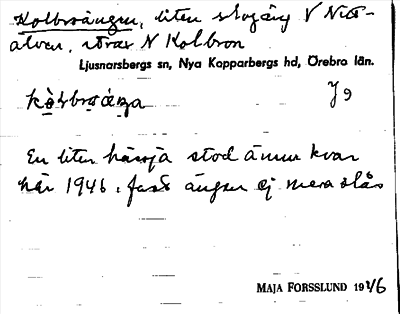 Kolbroängen, liten slogäng V Nitt-
älven, strax N Kolbron
Ljusnarsbergs sn, Nya Kopparbergs hd, Örebro län.
J 9
En liten hässja stod ännu kvar
här 1946, fast ängen ej mera slås
MAJA FORSSLUND 1946